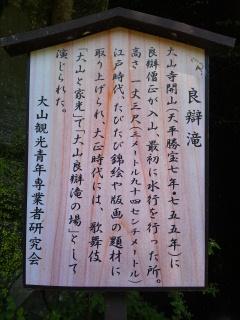 良辯滝
大山寺開山(天平勝宝七年・七五五年)に
良辯僧正が入山、最初に水行を行った所。
高さ一丈三尺(三メートル九十四センチメートル)
江戸時代、たびたび錦絵や版画の題材に
取り上げられ、大正時代には、歌舞伎
「大山と家光」で「大山良辯滝の場」として
演じられた。
大山観光青年専業者研究会